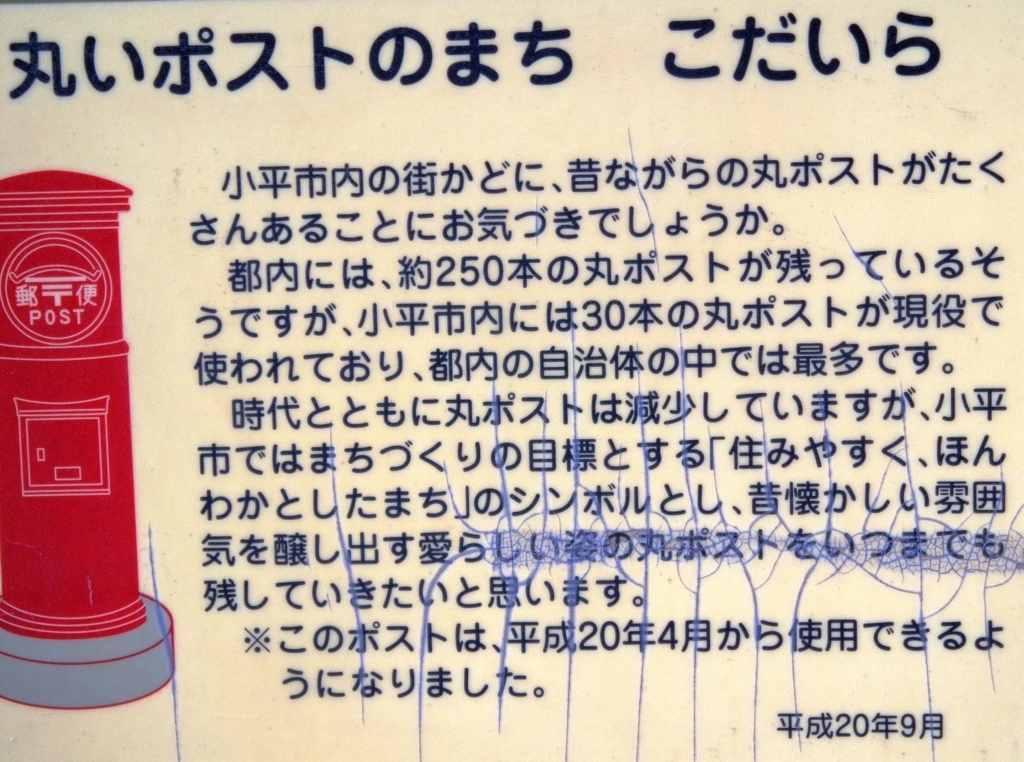 丸いポストのまち　こだいら
郵〒便
POST
小平市内の街かどに、昔ながらの丸ポストがたく
さんあることにお気づきでしょうか。
都内には、約250本の丸ポストが残っているそ
うですが、小平市内には30本の丸ポストが現役で
使われており、都内の自治体の中では最多です。
時代とともに丸ポストは減少していますが、小平
市ではまちづくりの目標とする「住みやすく、ほん
わかとしたまち」のシンボルとし、昔懐かしい雰囲
気を醸し出す愛らしい姿の丸ポストをいつまでも
残していきたいと思います。
※このポストは、平成20年4月から使用できるよ
うになりました。
平成20年9月